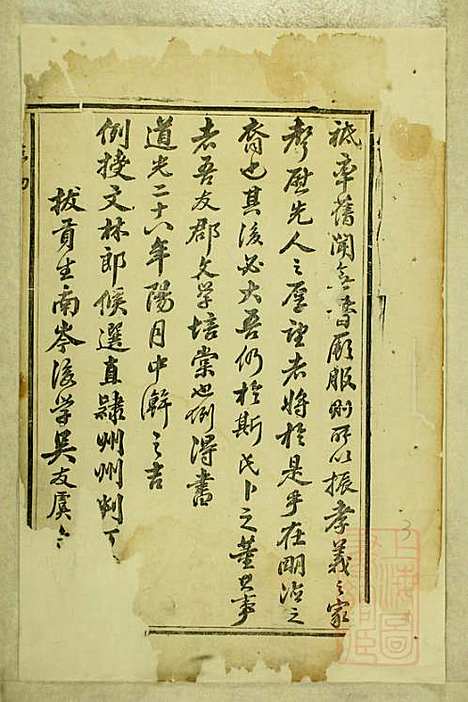 祗率舊聞無替厥服則所以振孝義之家
聲慰先人之屬望者將於是乎在明德之
裔也其後必大吾仍於斯氏卜之董其事
者吾友郡文學培棠也例得書
道光二十八年陽月中澣之吉
例授文林郎候選直隸州州判丁
拔貢生南岑後學吳友虞
上海圖